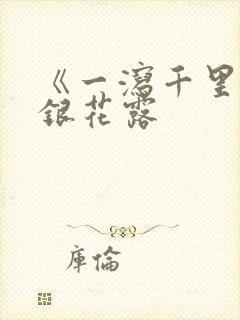 《一瀉千里
銀花露
庫倫